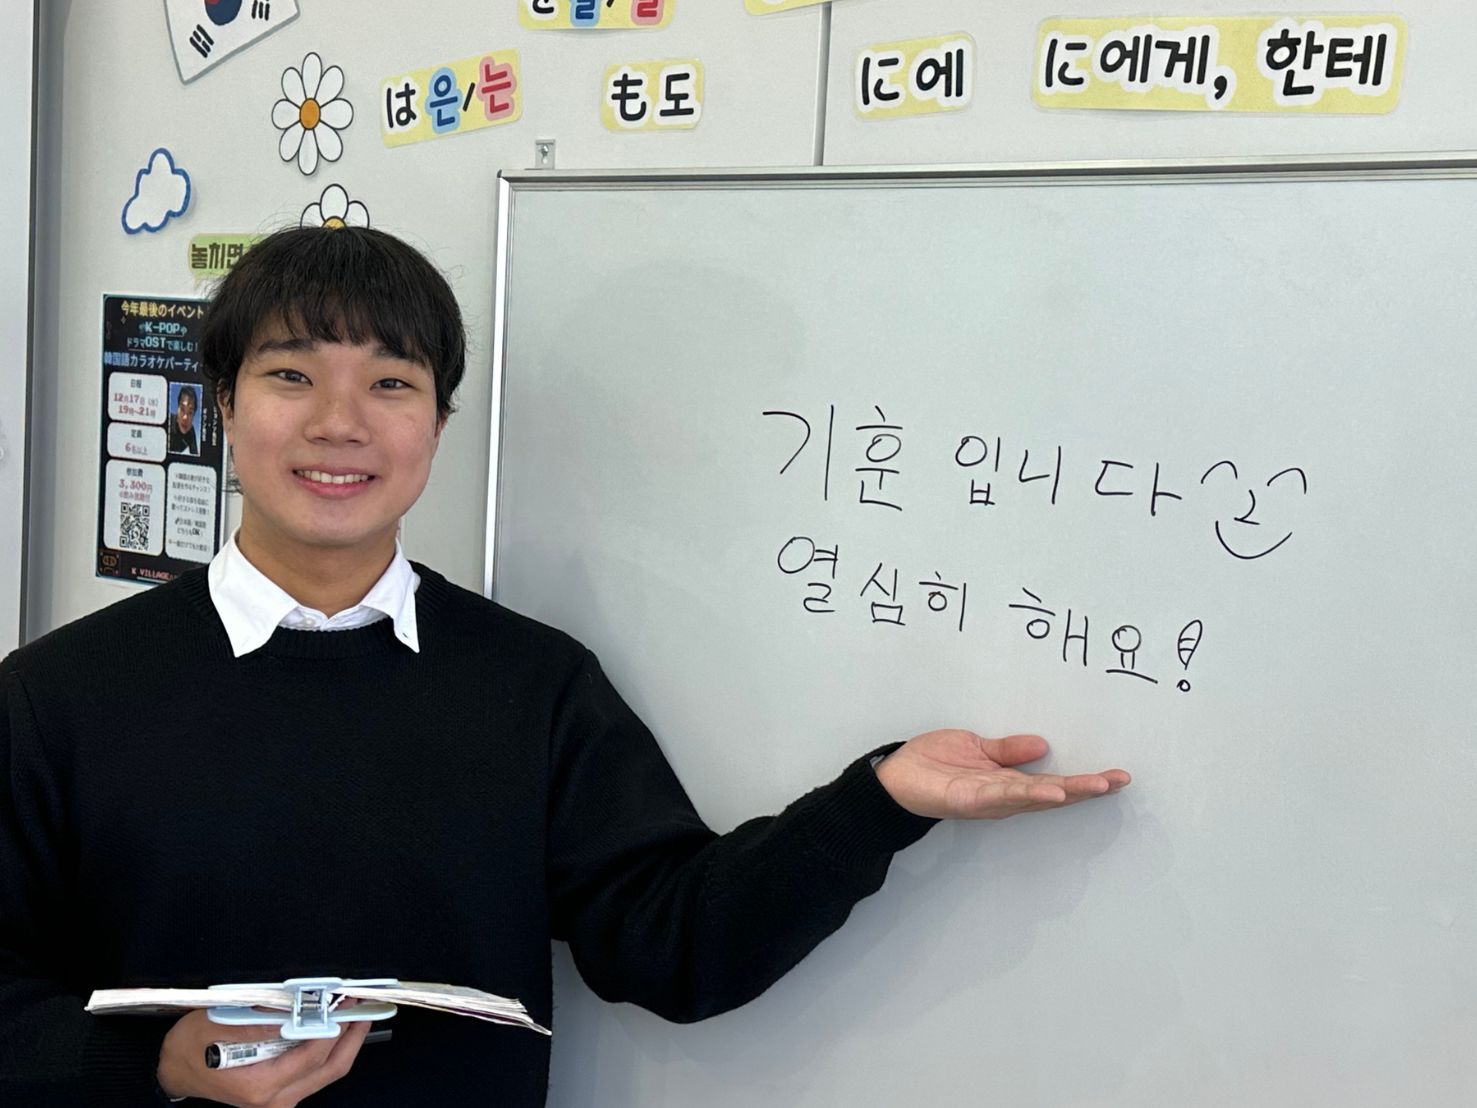 は 은/는
も 도
に 에
に 에게, 한테
놓치면
今年最後のイベント
K-POPや
ドラマOSTで楽しむ!
韓国語カラオケパーティー
日程
12月17日 (水)
19時~21時
定員
6名以上
参加費
3,300円
K VILLAGE
기훈 입니다
열심히 해요!